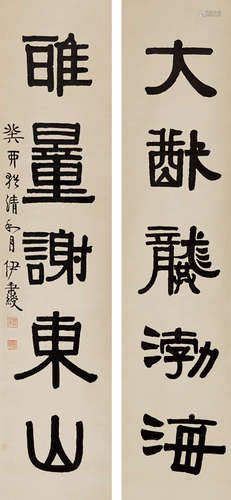 大猷龔渤海
雅量謝東山
癸酉清和月伊秉綬